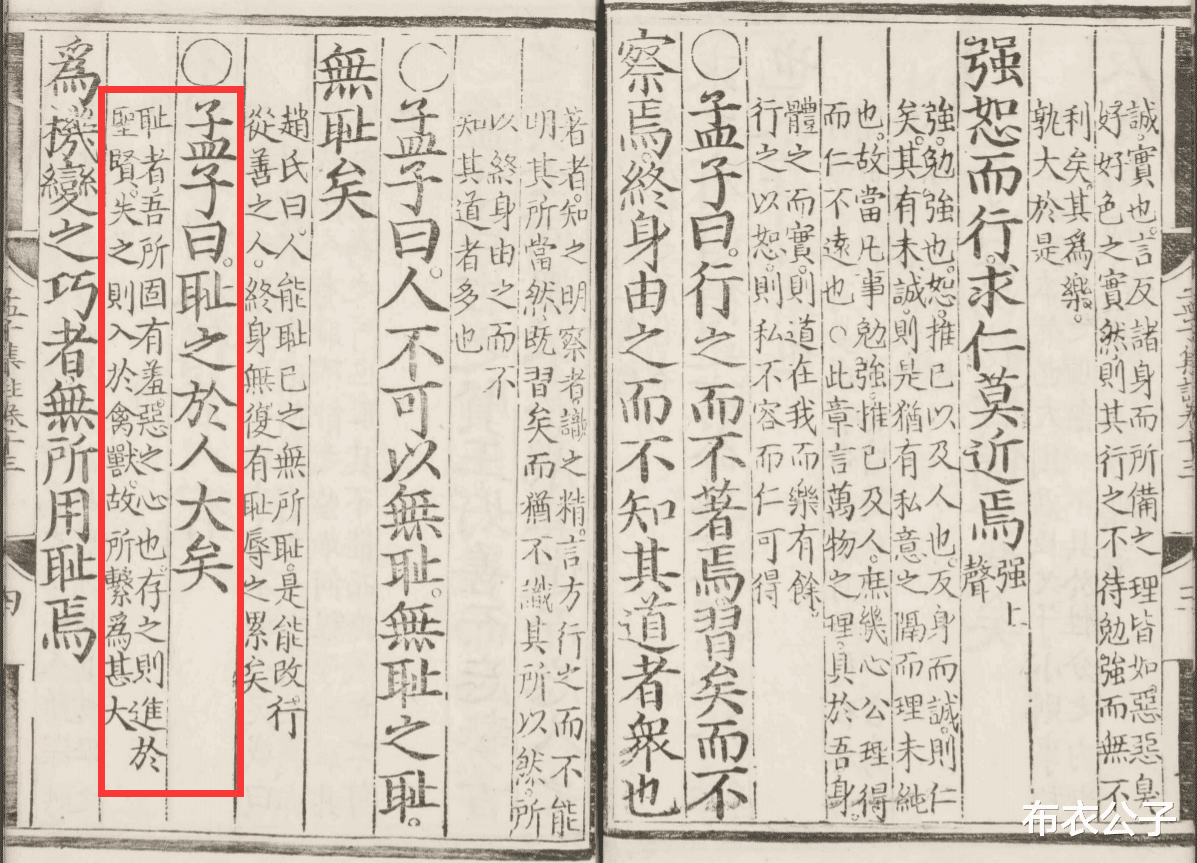 誠。實也。言反諸身而所備之理皆如惡惡臭
好好色之實然。則其行之不待勉強而無不
利矣。其爲樂。
孰大於是
强恕而行。求仁莫近焉
强上
聲
強。勉強也。恕。推己以及人也。反身而誠。則仁
矣。其有未誠。則是猶有私意之隔而理未純
也。故當凡事勉強。推己及人。庶幾心公理得
而仁不遠也○此章言萬物之理。具於吾身。
體之而實。則道在我而樂有餘。
行之以恕。則私不容而仁可得
○孟子曰。行之而不著焉。習矣而不
察焉。終身由之而不知其道者衆也
著者。知之明。察者識之精。言方行之而不能
明其所當然。既習矣而猶不識其所以然。所
以終身由之而不
知其道者多也
○孟子曰。人不可以無耻。無耻之耻。
無耻矣
趙氏曰。人能耻己之無所耻。是能改行
從善之人。終身無復有耻辱之累矣
○孟子曰。耻之於人大矣
耻者。吾所固有羞惡之心也。存之則進於
聖賢。失之則入於禽獸。故所繫爲甚大
爲機變之巧者無所用耻焉
布衣公子